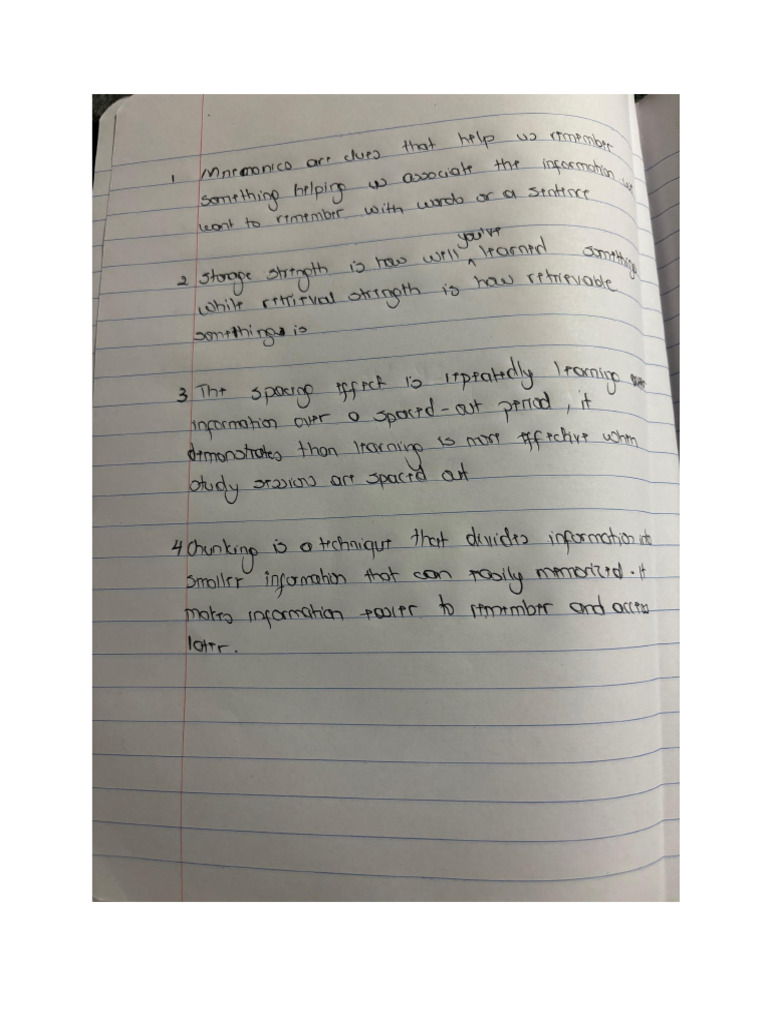 1 Mnemonics are clues that help us remember
something helping us associate the information we
want to remember with words or a sentence
2 Storage strength is how well you've learned something
while retrieval strength is how retrievable
something is
3 The spacing effect is repeatedly learning
information over a spaced-out period, it
demonstrates than learning is most effective when
study sessions are spaced out
4 Chunking is a technique that divides information into
smaller information that can easily memorized. It
makes information easier to remember and access
later.